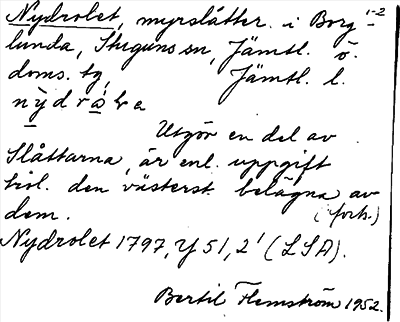 Nydrolet, myrslåtter. i Borg- 1-2
lunda, Stuguns sn, Jämtl. ö.
doms. tg, Jämtl. l.
nỳdra
Utgör en del av
Slåttarna, är enl. uppgift
den västerst belägna av
dem. (forts.)
Nydrolet 1797, Y 51, 2' (LSA).
Bertil Flemström 1952.